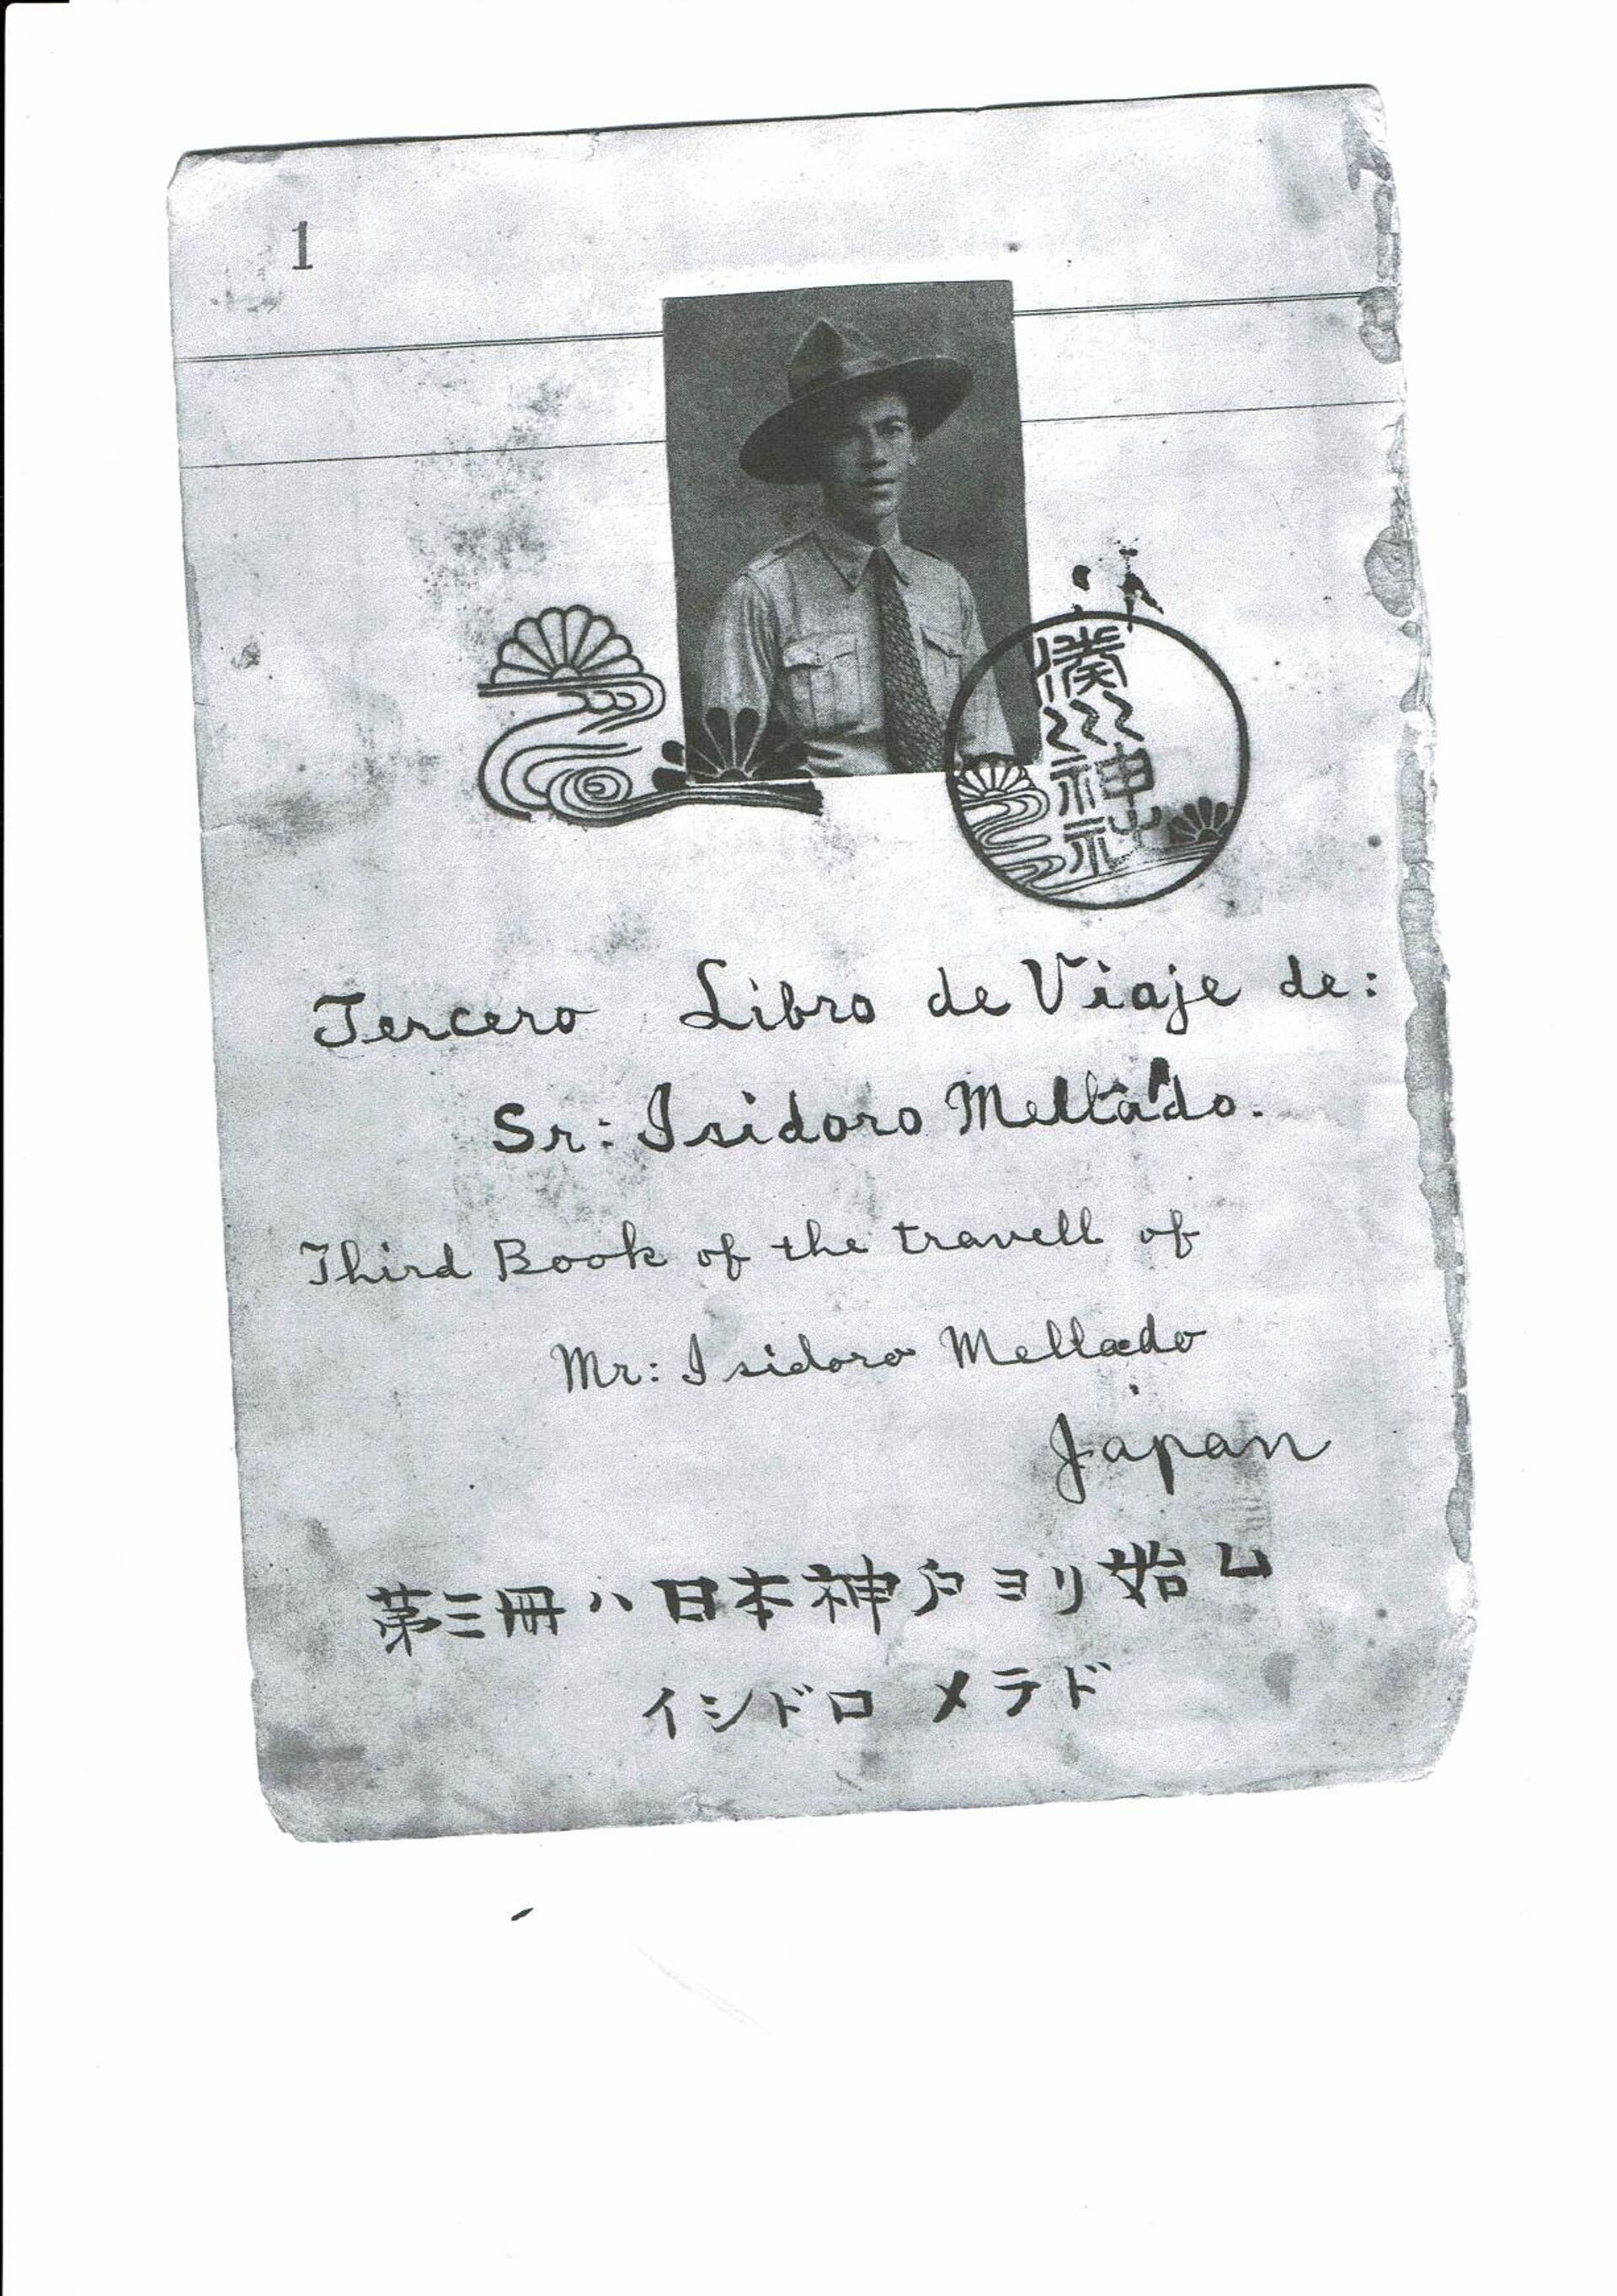 1
湊川神社
Tercero Libro de Viaje de:
Sr: Isidoro Mellado.
Third Book of the travell of
Mr: Isidoro Mellado
Japan
第三冊ハ日本神戸ヨリ始ム
イシドロ メラド